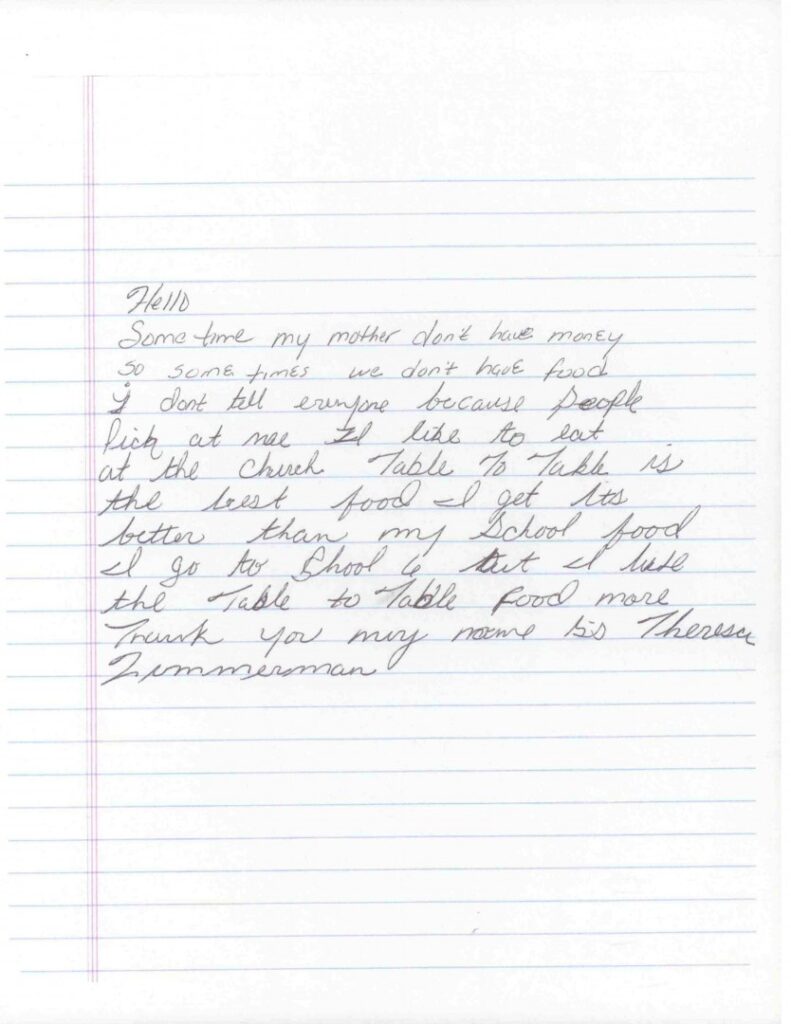 Hello
Some time my mother don't have money
so some times we don't have food
I dont tell everyone because people
Pick at me I like to eat
at the Church Table To Table is
the best food I get Its
better than my School food
I go to School 6 but I like
the Table to Table food more
Thank you my name Is Theresa
Zimmerman